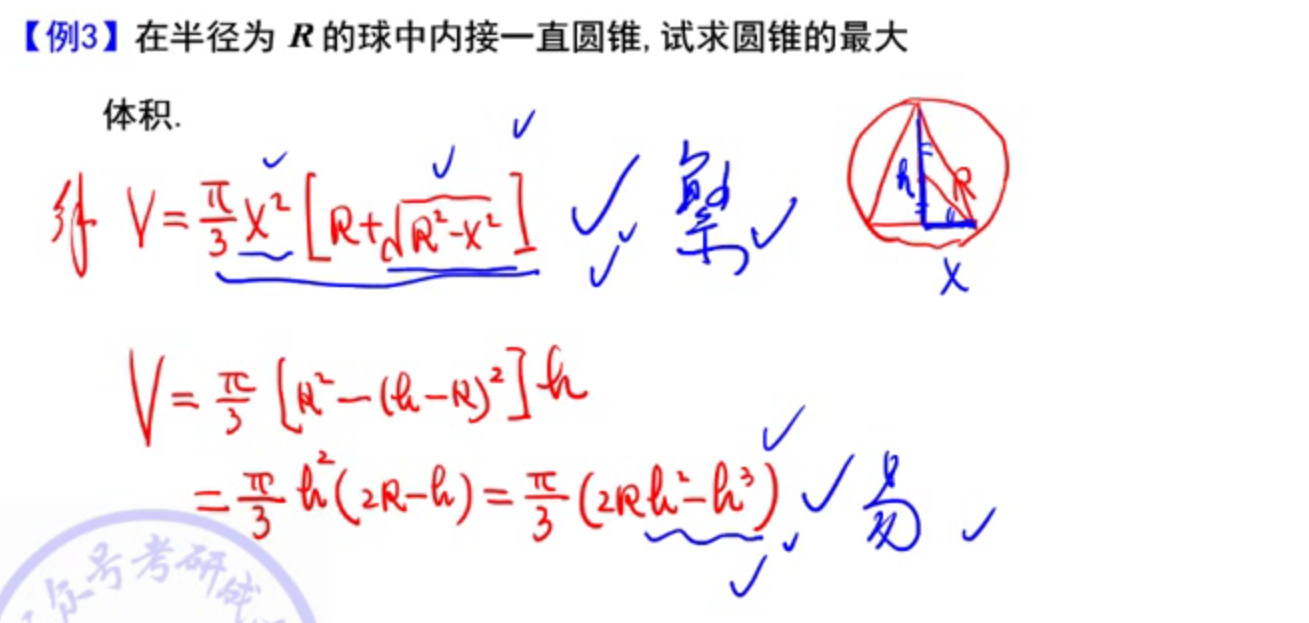 【例3】在半径为 R 的球中内接一直圆锥, 试求圆锥的最大
体积.
解 V = π/3 x² [R+√(R²-x²)] 繁
h R
x
V = π/3 [R²-(h-R)²]h
= π/3 h²(2R-h) = π/3 (2Rh²-h³) 易
号考研